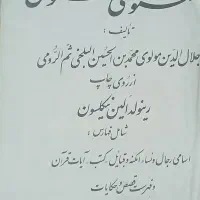 مثنوی معنوی
تألیف:
جلال الدین مولوی محمد بن الحسین البلخی ثم الرومی
از روی چاپ
رینولد الین نیکلسون
شامل فهارس:
اسامی رجال و نساء، امکنه و قبایل، کتب، آیات قرآن
و فهرست قصص و حکایات